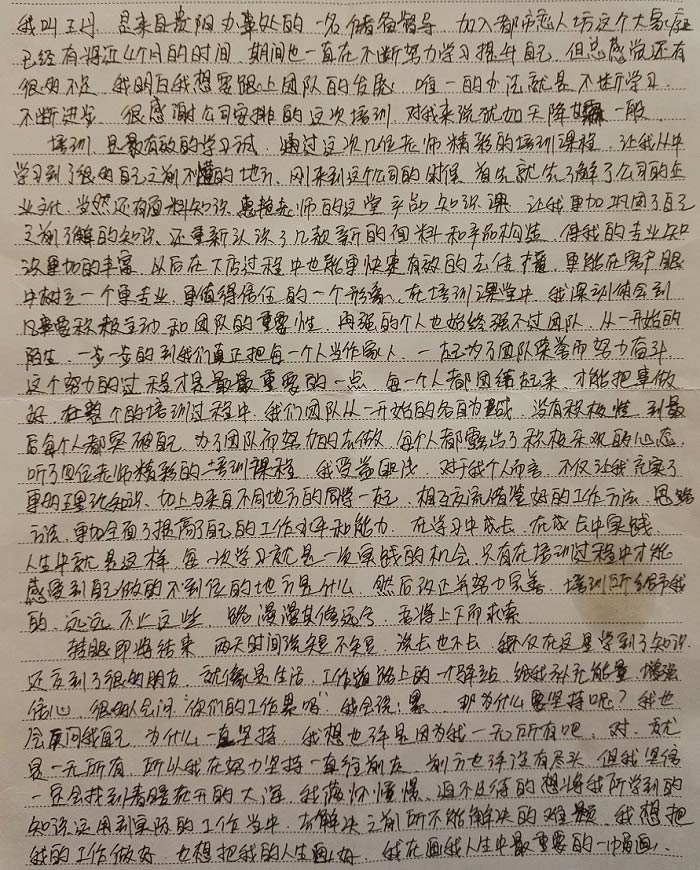 我叫王丹 是来自贵阳办事处的一名储备督导 加入都市恋人坊这个大家庭
已经有将近4个月的时间 期间也一直在不断努力学习提升自己 但总感觉还有
很多不足 我明白我想要跟上团队的发展 唯一的办法就是不断学习
不断进步 很感谢公司安排的这次培训 对我来说犹如天降 一般
培训 是最有效的学习 通过这次几位老师精彩的培训课程 让我从中
学习到了很多自己之前不懂的地方 刚来到这个公司的时候 首先就先了解了公司的企
业文化 当然还有面料知识 惠艳老师的这堂产品知识课 让我更加巩固了自己
之前了解的知识 还重新认识了几款新的面料和产品构造 使我的专业知
识更加的丰富 以后在下店过程中也能更快更有效的去传播 更能在客户眼
中树立一个更专业 更值得信任的一个形象 在培训课堂中 我深刻体会到
凡事要积极主动和团队的重要性 再强的个人也始终强不过团队 从一开始的
陌生 一步一步的到我们真正把每一个人当作家人 一起为了团队荣誉而努力奋斗
这个努力的过程才是最最重要的一点 每一个人都团结起来 才能把事做
好 在整个的培训过程中 我们团队从一开始的各自为战 没有积极性 到最
后每个人都突破自己 为了团队而努力的去做 每个人都露出了积极乐观的心态
听了四位老师精彩的培训课程 我受益匪浅 对于我个人而言 不仅让我充实了
更多理论知识 加上与来自不同地方的同伴一起 相互交流借鉴好的工作方法 思路
方法 更加全面了提高了自己的工作水平和能力 在学习中成长 在成长中实践
人生中就是这样 每一次学习就是一次实践的机会 只有在培训过程中才能
感受到自己做的不到位的地方是什么 然后改正并努力完善 培训所给予我
的 远远不止这些 路漫漫其修远兮 吾将上下而求索
转眼即将结束 两天时间说短不短 说长也不长 我不仅在这里学到了知识
还交到了很多朋友 就像是生活 工作道路上的一个驿站 给我补充能量 增强
信心 很多人会问 你们的工作累吗 我会说:累 那为什么要坚持呢? 我也
会反问我自己 为什么一直坚持 我想也许是因为我一无所有吧 对 就
是一无所有 所以我在努力坚持一直往前走 前方也许没有尽头 但我坚信
一定会找到春暖花开的大海 我满怀憧憬 迫不及待的想将我所学到的
知识运用到实际的工作当中 去解决之前所不能解决的难题 我想把
我的工作做好 也想把我的人生画好 我在画我人生中最重要的一幅画